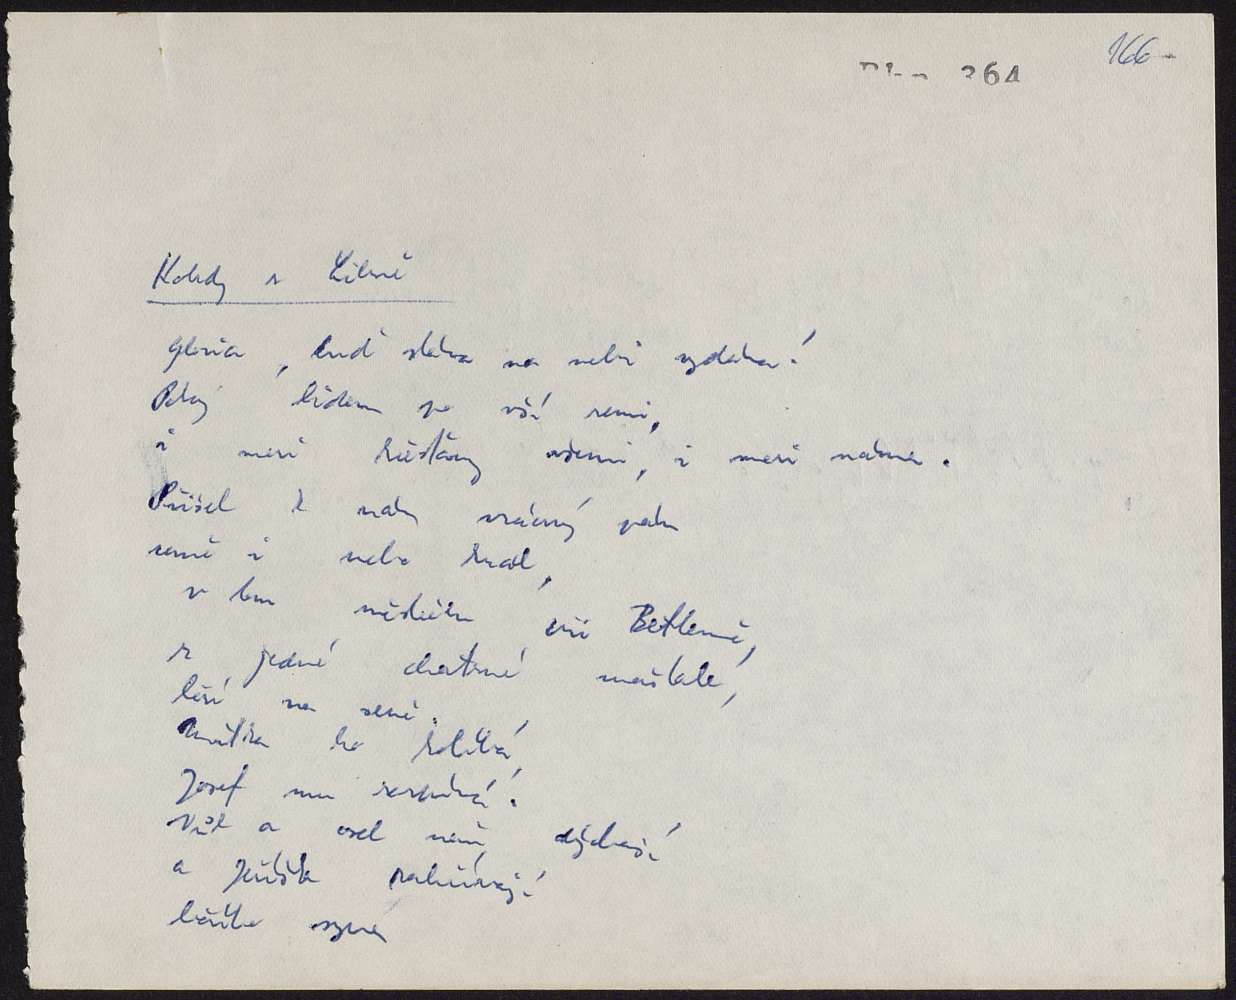 166
364
Koledy z Libně
Gloria, buď sláva na nebi vzdána!
Pokoj lidem po vší zemi,
i mezi křesťany všemi, i mezi náma.
Přišel k nám vzácný pán
země i nebe král,
v tom městečku při Betlémě,
v jedné chatrné maštale,
leží na seně.
Matka ho kolíbá,
Josef mu zazpívá.
Vůl a osel naň dýchají
a Ježíška zahřívají
božího syna